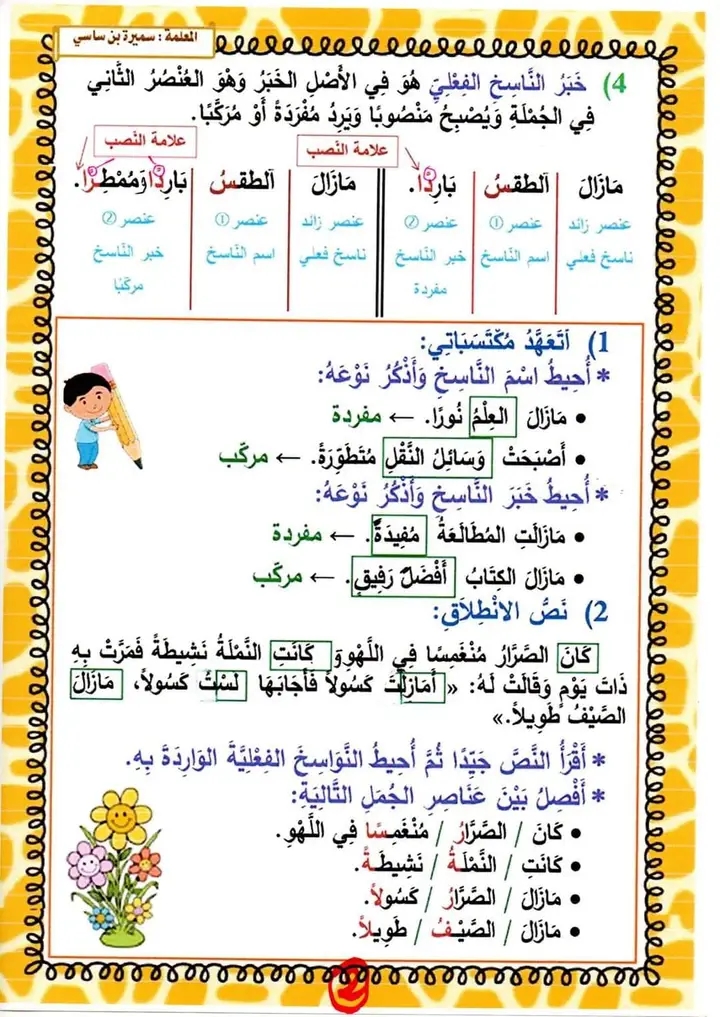 المعلمة : سميرة بن ساسي
4) خَبَرُ النَّاسِخِ الفِعْلِيِّ هُوَ فِي الأَصْلِ الخَبَرُ وَهْوَ العُنْصُرُ الثَّانِي
فِي الجُمْلَةِ وَيُصْبِحُ مَنْصُوبًا وَيَرِدُ مُفْرَدَةً أَوْ مُرَكَّبًا.
علامة النّصب
علامة النّصب
مَازَالَ الطقسُ بَارِدًا.
مَازَالَ الطقسُ بَارِدًا وَمُمْطِرًا.
عنصر زائد عنصر ① عنصر ②
عنصر زائد عنصر ① عنصر ②
ناسخ فعلي اسم النّاسخ خبر النّاسخ
ناسخ فعلي اسم النّاسخ خبر النّاسخ
مفردة
مركبّا
1) أَتَعَهَّدُ مُكْتَسَبَاتِي:
* أُحِيطُ اسْمَ النَّاسِخِ وَأَذْكُرُ نَوْعَهُ:
• مَازَالَ العِلْمُ نُورًا. ← مفردة
• أَصْبَحَتْ وَسَائِلُ النَّقْلِ مُتَطَوِّرَةً. ← مركّب
* أُحِيطُ خَبَرَ النَّاسِخِ وَأَذْكُرُ نَوْعَهُ:
• مَازَالَتِ المُطَالَعَةُ مُفِيدَةً. ← مفردة
• مَازَالَ الكِتَابُ أَفْضَلَ رَفِيقٍ. ← مركّب
2) نَصُّ الانْطِلَاقِ:
كَانَ الصَّرَّارُ مُنْغَمِسًا فِي اللَّهْوِ وَ كَانَتِ النَّمْلَةُ نَشِيطَةً فَمَرَّتْ بِهِ
ذَاتَ يَوْمٍ وَقَالَتْ لَهُ: « أَمَازِلْتَ كَسُولاً فَأَجَابَهَا لَسْتُ كَسُولاً، مَازَالَ
الصَّيْفُ طَوِيلاً.»
* أَقْرَأُ النَّصَّ جَيِّدًا ثُمَّ أُحِيطُ النَّوَاسِخَ الفِعْلِيَّةَ الوَارِدَةَ بِهِ.
* أَفْصِلُ بَيْنَ عَنَاصِرِ الجُمَلِ التَّالِيَةِ:
• كَانَ / الصَّرَّارُ / مُنْغَمِسًا فِي اللَّهْوِ.
• كَانَتِ / النَّمْلَةُ / نَشِيطَةً.
• مَازَالَ / الصَّرَّارُ / كَسُولاً.
• مَازَالَ / الصَّيْفُ / طَوِيلاً.
2